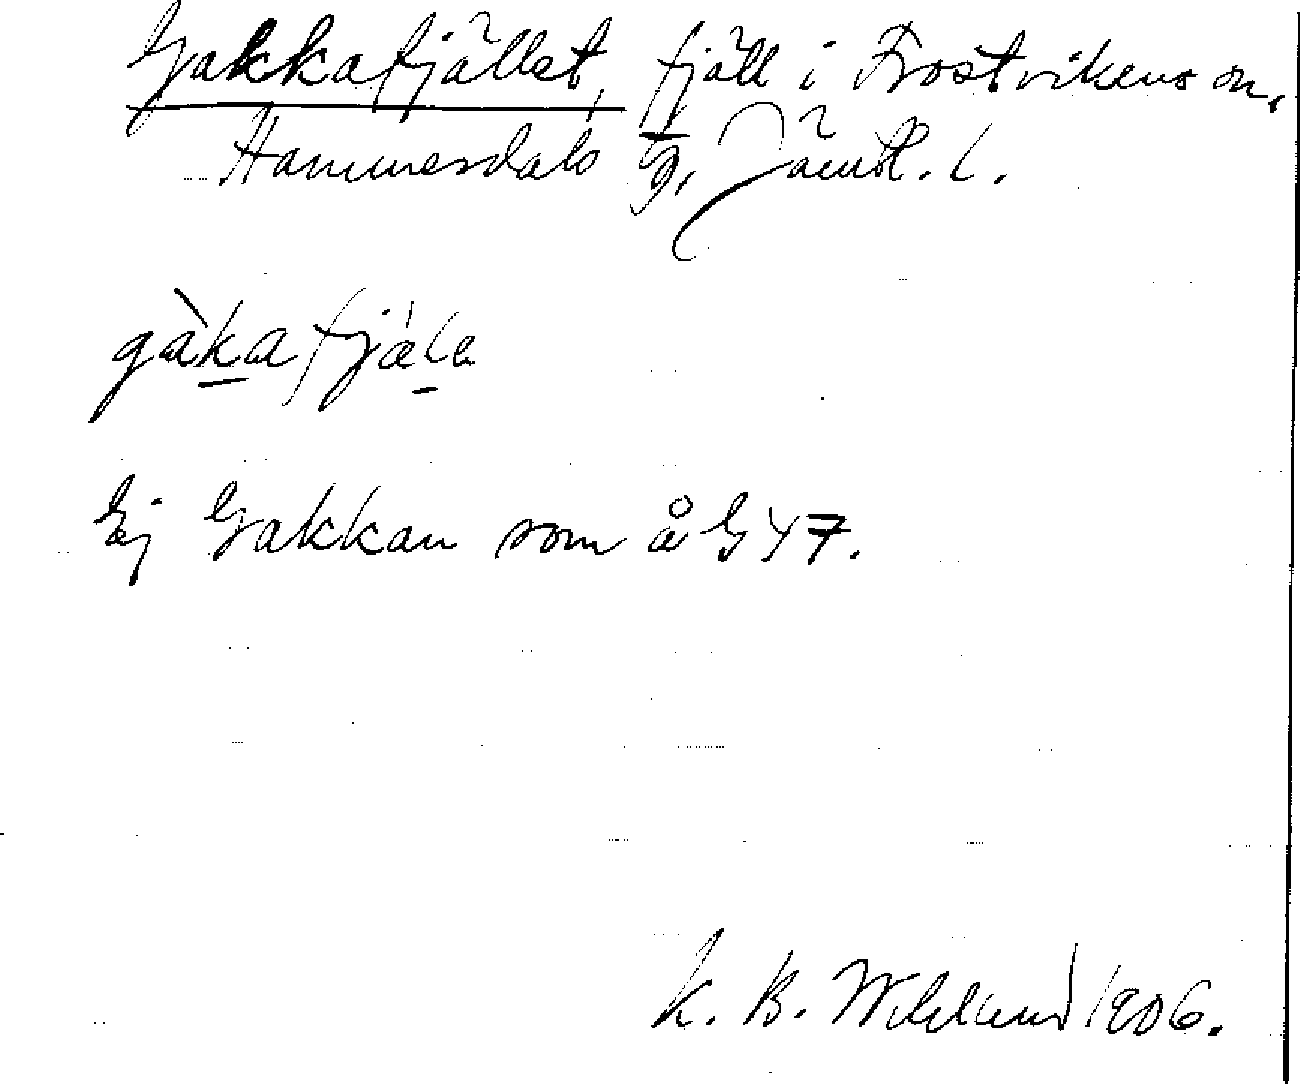 Gakkafjället, fjäll i Frostvikens sn,
Hammerdals tg, Jämtl. l.
gàkafjäla
Ej Gakkan som å G 47.
K. B. Wiklund 1906.